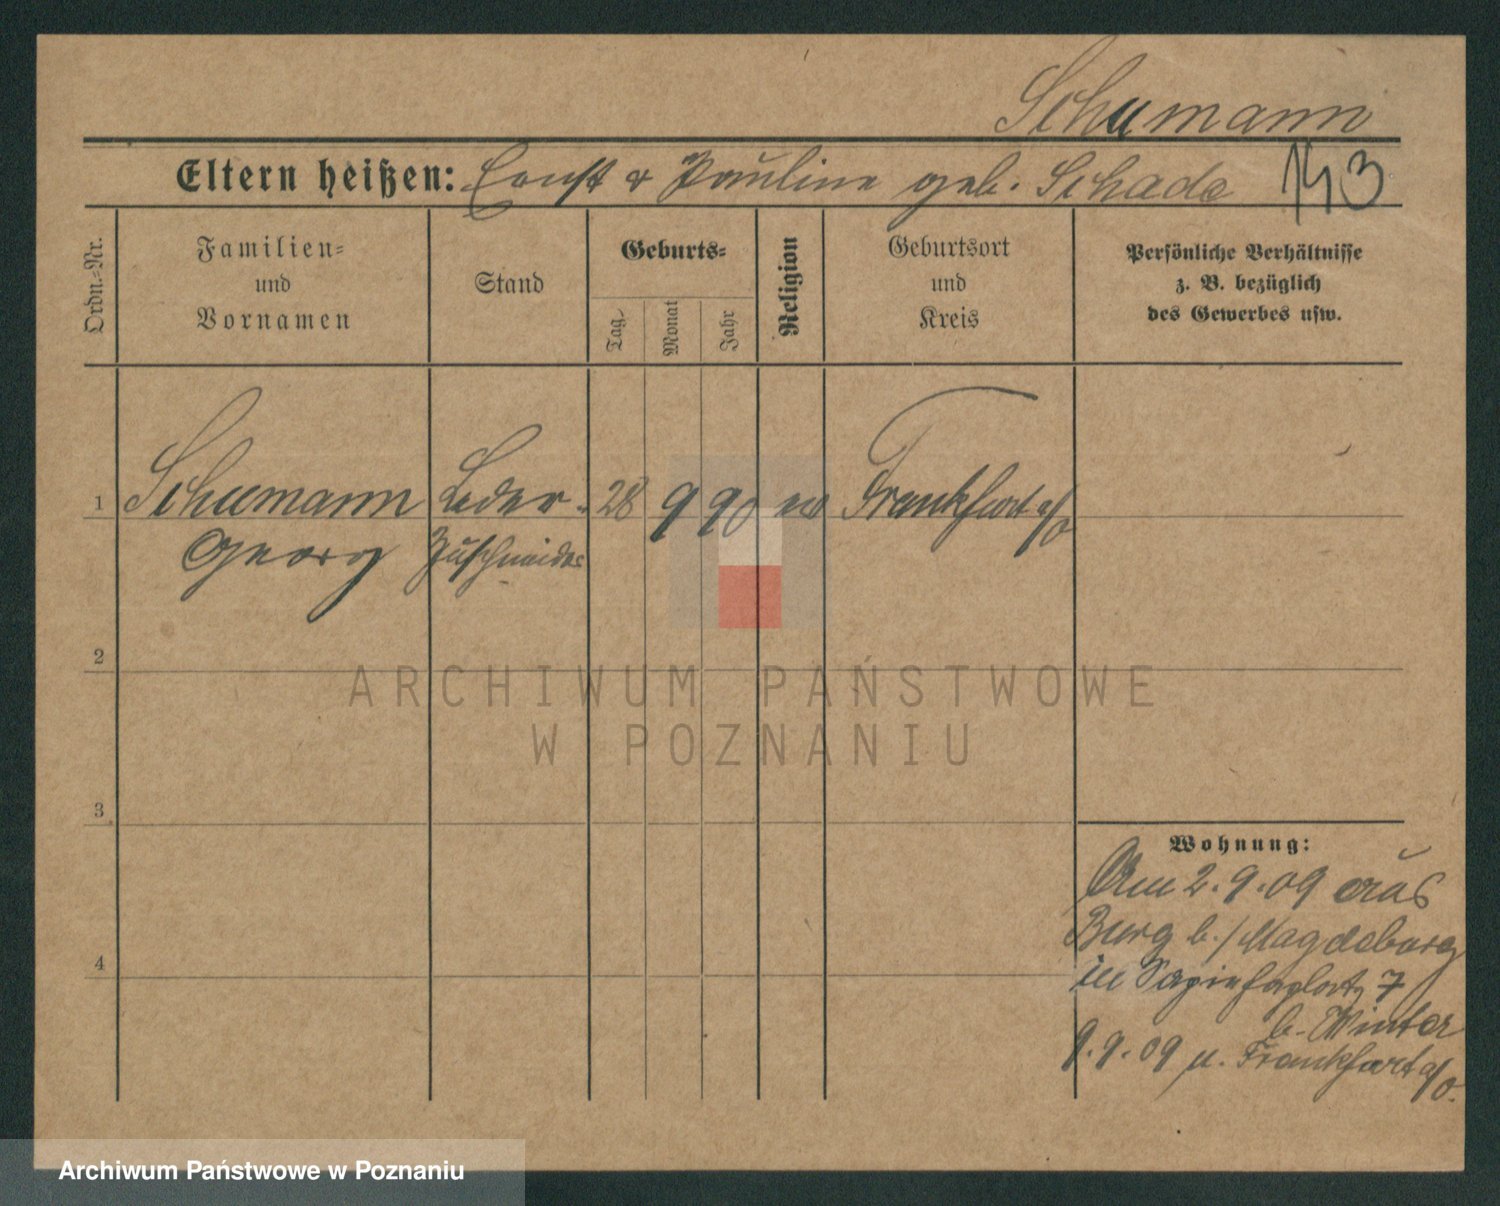 Schumann
Eltern heißen: Ernst u Pauline geb. Schade 143
Ordn.-Nr.
Familien=
und
Vornamen
Stand
Geburts=
Tag
Monat
Jahr
Religion
Geburtsort
und
Kreis
Persönliche Verhältnisse
z. B. bezüglich
des Gewerbes usw.
1 Schumann Leder- 28 9 90 ev Frankfurt a/O
Georg Zuschneider
2
ARCHIWUM PAŃSTWOWE
W POZNANIU
3
Wohnung:
Am 2.9.09 aus
Burg b./Magdeburg
in Sapiehaplatz 7
4
b. Winter
9.9.09 n. Frankfurt a/O.
Archiwum Państwowe w Poznaniu